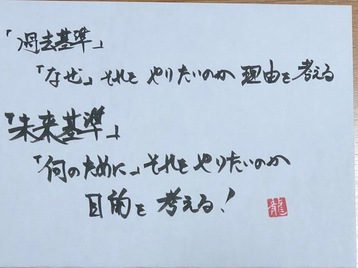 「過去基準」
「なぜ」それをやりたいのか 理由を考える
『未来基準』
「何のために」それをやりたいのか
目的を考える!